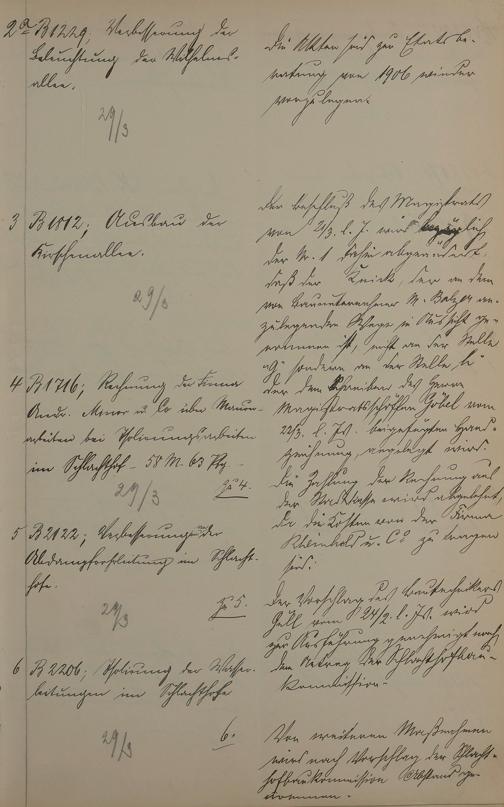 2a B1229; Verbesserung der
Beleuchtung der Wilhelms-
allee.
29/3
Die Akten sind zur Etatsbe-
ratung von 1906 wieder
vorzulegen.
3 B1812; Ausbau der
Kirschenallee.
29/3
Der Beschluß des Magistrats
von 2/3. l. J. wird
der N. 1 dahin abgeändert,
daß der Knick, der an dem
von Bauunternehmer M. Balzer an-
zulegenden Wege in Aussicht ge-
nommen ist, nicht an der Stelle
"g" sondern an der Stelle
der dem Schreiben des Herrn
Magistratsschöffen Göbel vom
22/3. l. Js. beigefügten Hand-
zeichnung, angelegt wird.
4 B1716; Rechnung der Firma
Andr. & Co über Mauer-
arbeiten bei Isolierungsarbeiten
im Schlachthof - 58 M. 63 Pfg. -
29/3
Zu 4.
Die Zahlung der Rechnung aus
der Stadtkasse wird abgelehnt,
da die Kosten von der Firma
Rheinhold u. Co zu tragen
sind.
5 B2122; Verbesserung der
Abdampfableitung im Schlacht-
hofe.
29/3
Zu 5.
Der Vorschlag des Bautechnikers
vom 24/2. l. Js. wird
zur Ausführung genehmigt nach
dem Antrag der Schlachthofbau-
kommission.
6 B2206; Isolierung der Wasser-
leitungen im Schlachthofe
29/3
6.
Von weiteren Maßnahmen
wird nach Vorschlag der Schlacht-
hofbaukommission Abstand ge-
nommen.